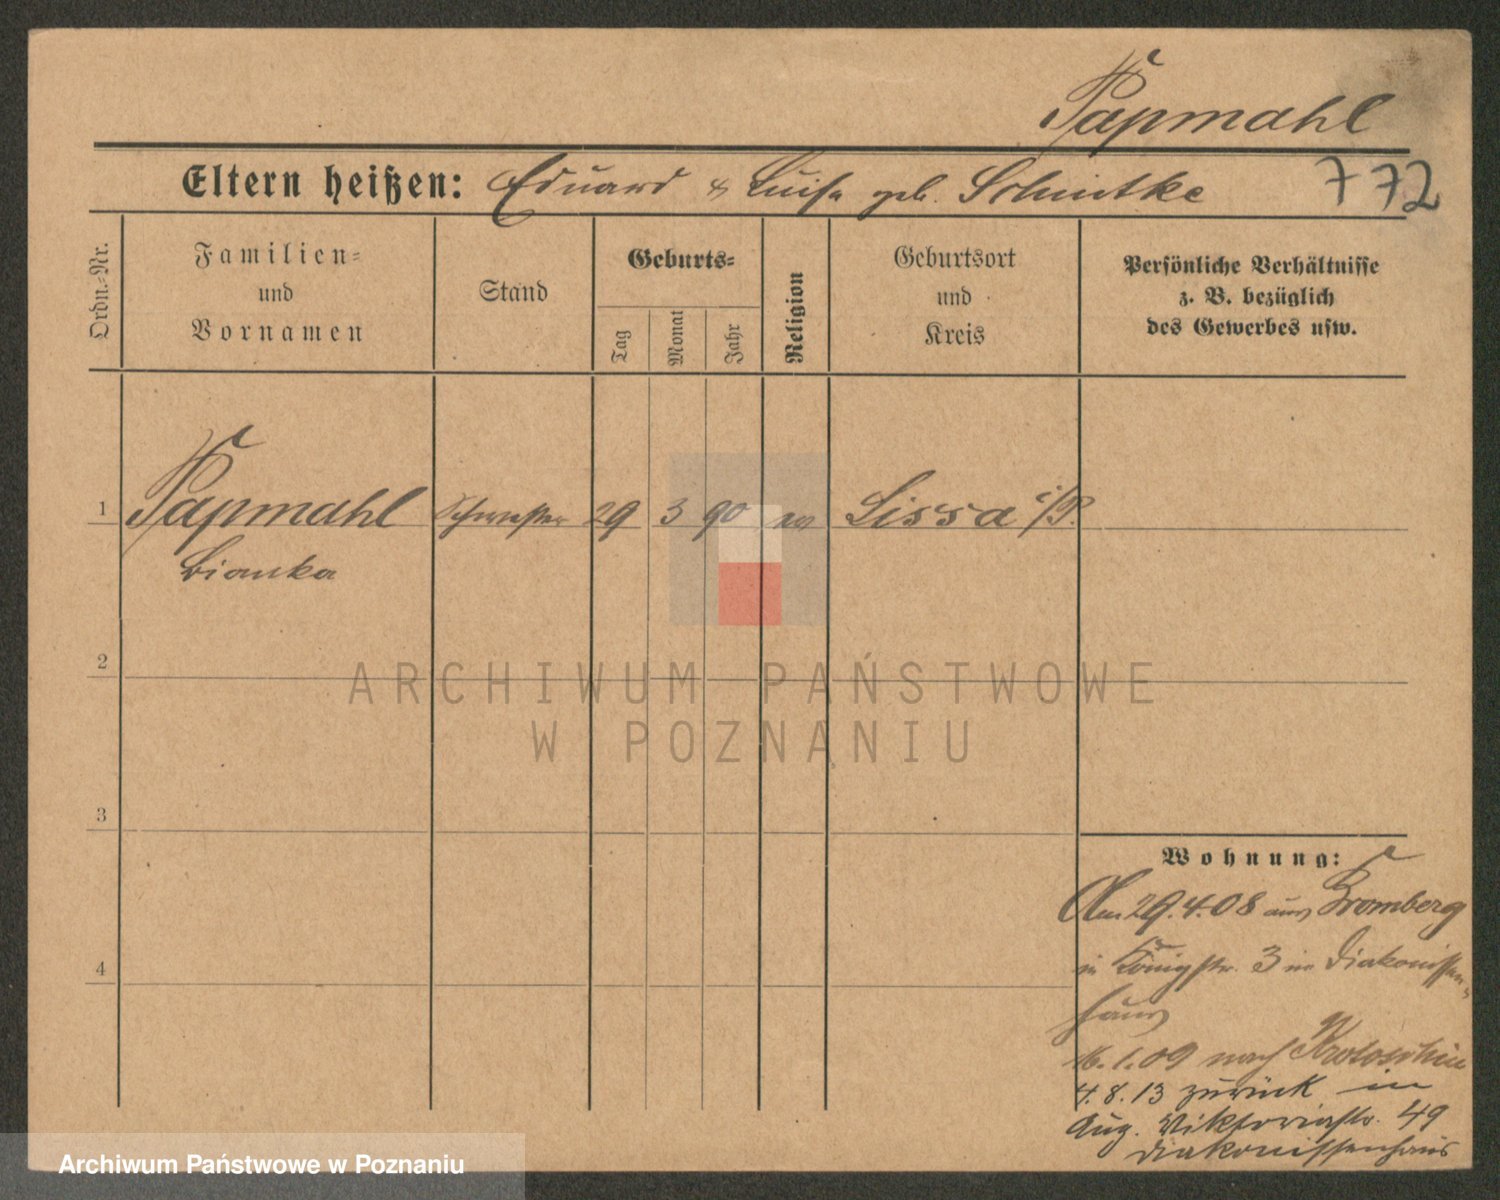 Papmahl
Eltern heißen: Eduard & Luise geb. Schmitke
772
Ordn.-Nr.
Familien- und Vornamen
Stand
Geburts-
Tag
Monat
Jahr
Religion
Geburtsort und Kreis
Persönliche Verhältnisse
z. B. bezüglich
des Gewerbes usw.
1 Papmahl Schwester 29 3 90 ev Lissa i/P.
Bianka
2
ARCHIWUM PAŃSTWOWE
W POZNANIU
3
Wohnung:
Am 29.4.08 aus Bromberg
in Königstr. 3 im Diakonissen-
haus
16.1.09 nach Krotoschin
4.8.13 zurück in
Aug. Viktoriastr. 49
Diakonissenhaus
4
Archiwum Państwowe w Poznaniu